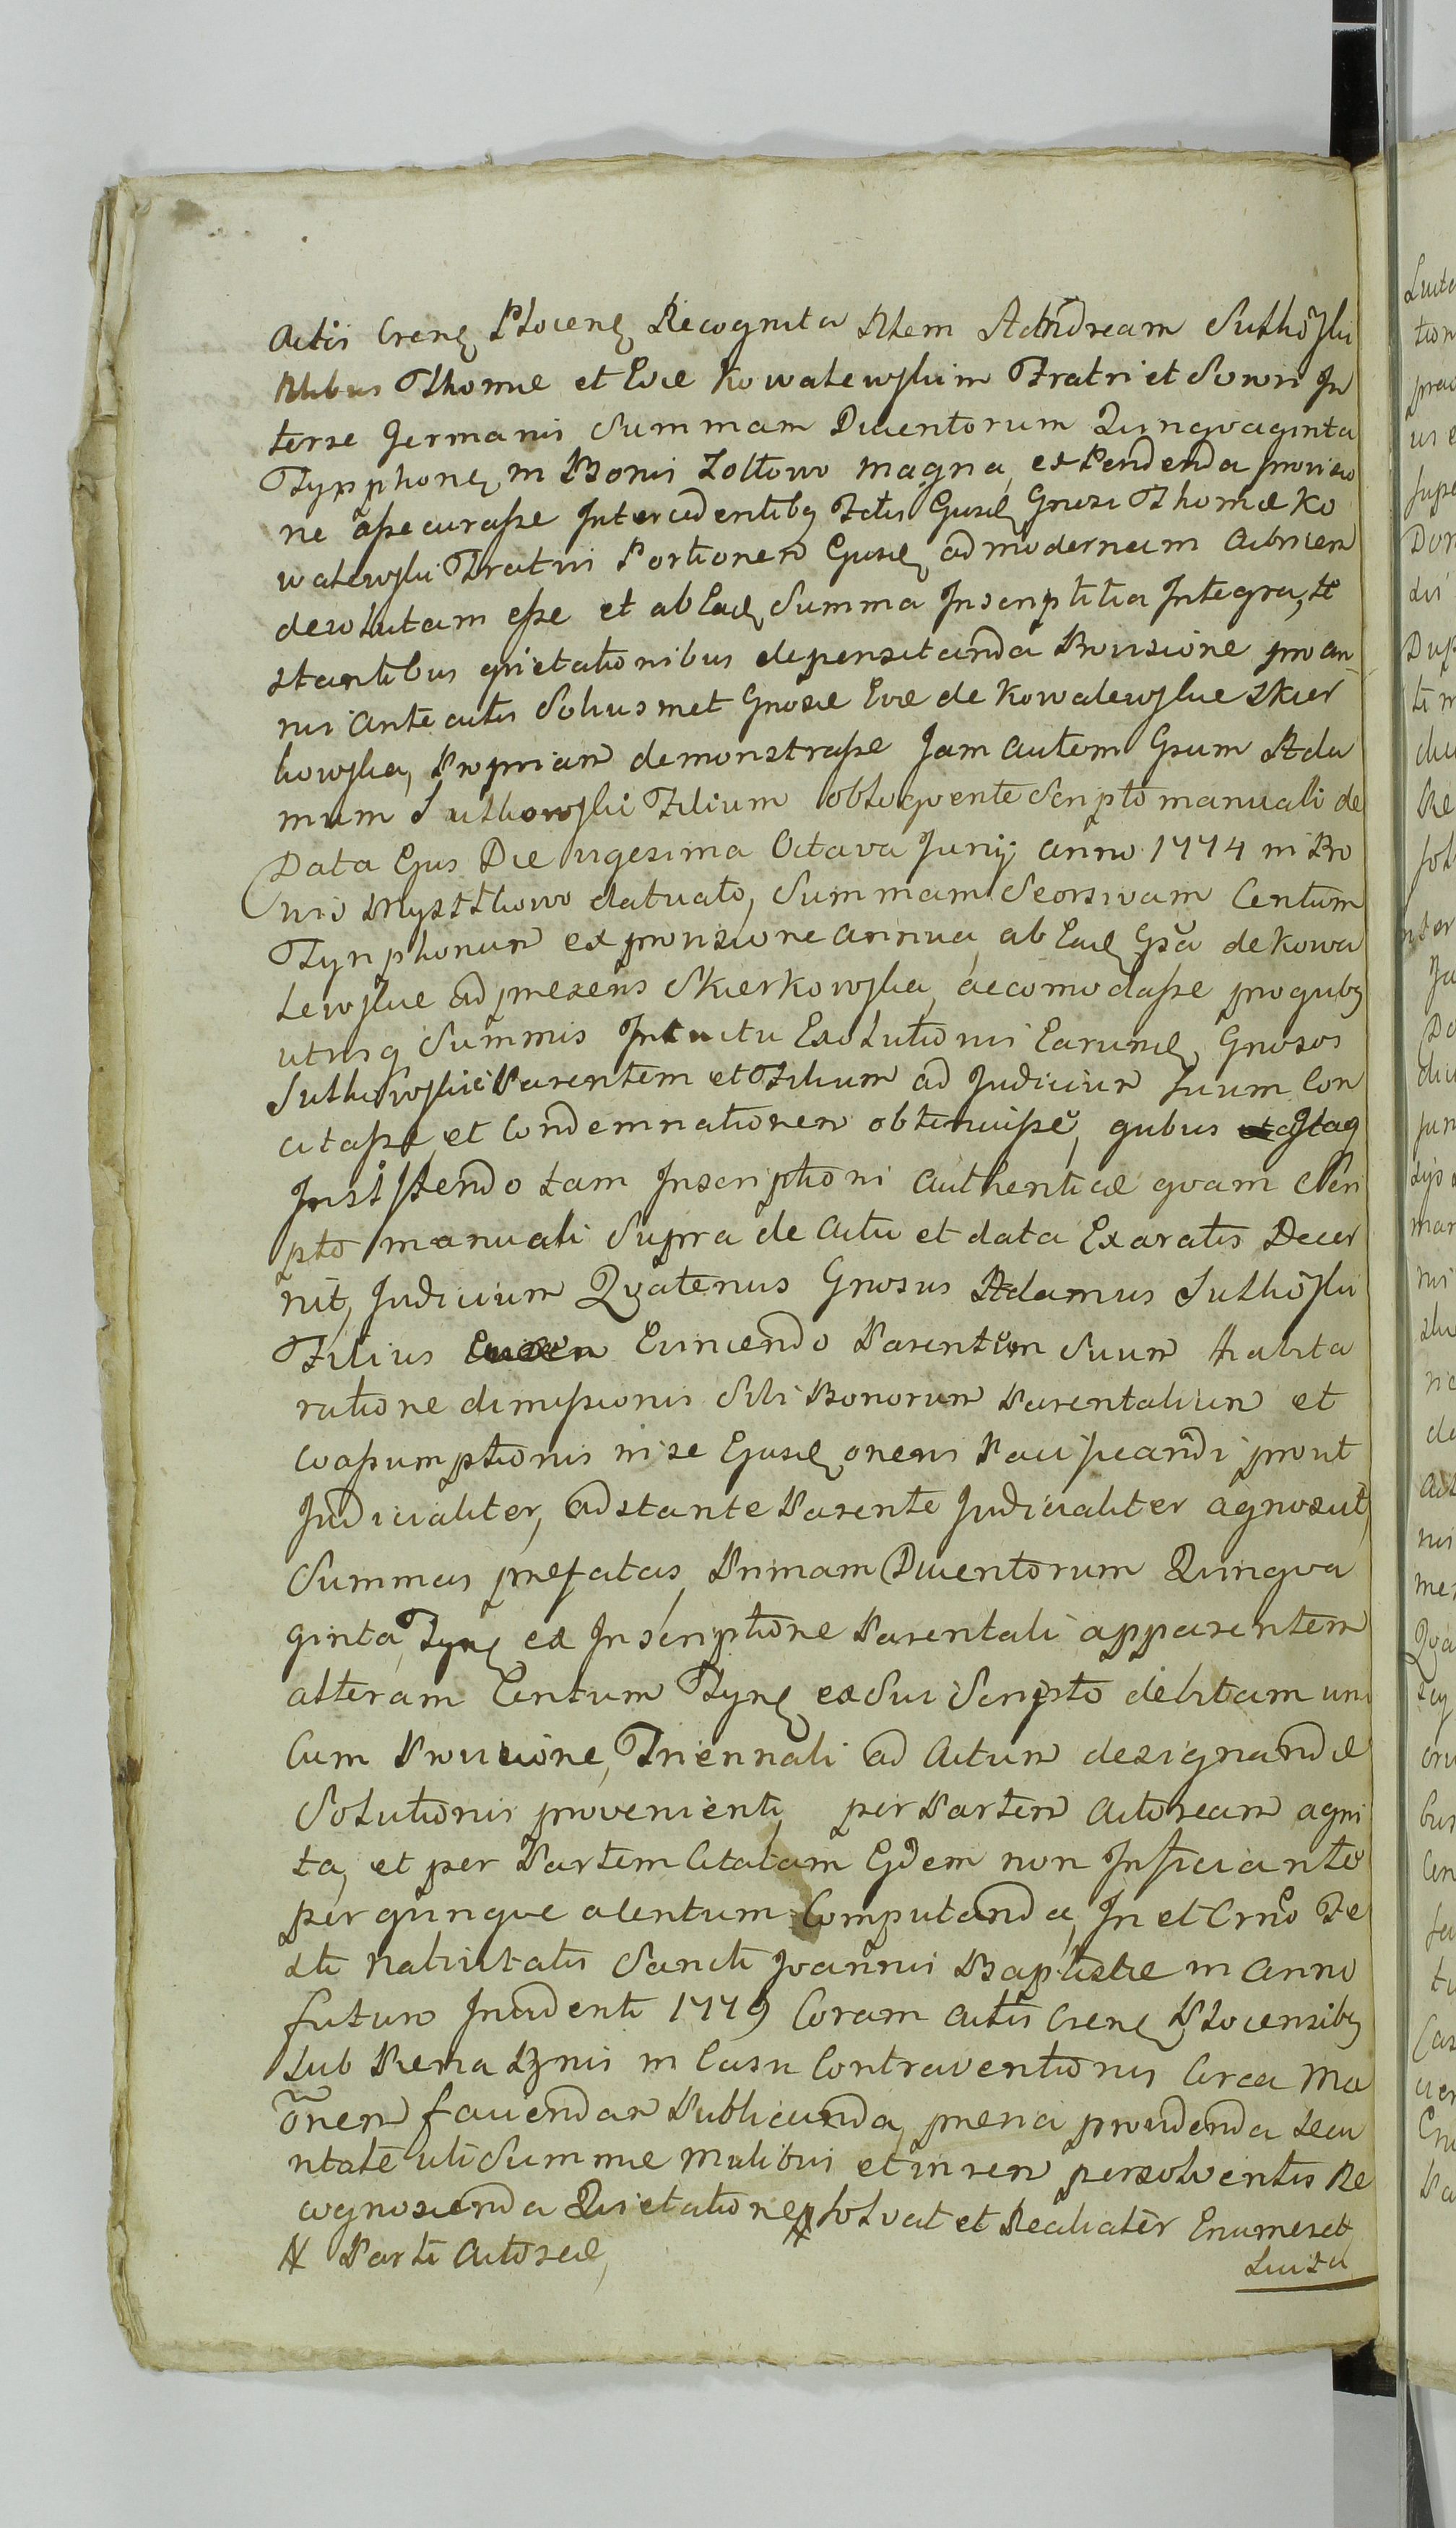 Actis Crens Plocens Recognita Rtem Andream Suthoski
Rtibus Thomæ et Evæ Kowalewskim Fratri et Sorori In
terse Germanis Summam Ducentorum Quinqvaginta
Tynphons in Bonis Zoltowo magna, expendenda provisio
ne assecurasse Intercedentibq Fatis Ejusd Gnosi Thomæ Ko
walewski Fratris Portionem Ejusd ad modernam Actricem
devolutam esse et ab Ead Summa Inscriptitia Integra, te
stantibus qvietationibus depensitanda Provisione pro an
nis ante actis Solius met Gnosæ Evæ de Kowalewskie Skier
kowska, Propriam demonstrasse Jam autem Gsum Ada
mum Suthowski Filium obloqvente Scripto manuali de
Data Ejus Die vigesima Octava Junij Anno 1774 in Bo
nis Mystkowo datuato, Summam Seorsivam Centum
Tynphonum ex provisione annua, ab Ead Gsa de Kowa
lewskie ad presens Skierkowska, accomodasse pro qubq
utrisq Summis Intuitu Exolutionis Earund, Gnosos
Suthowskie Parentem et Filium ad Judicium Suum Con
citasse, et Condemnationem obtinuisse, qubus Itaq
Insistendo tam Inscriptioni authenticæ qvam Scri
pto manuali Supra de Actu et data Exaratis Decer
nit, Judicium Qvatenus Gnosus Adamus Suthoski
Filius Evincendo Parentem Suum Habita
ratione dimissionis Sibi Bonorum Parentalium et
coassumptionis in se Ejusd oneris Pacificandi prout
Judicialiter, adstante Parente Judicialiter agnovit,
Summas prefatas, Primam Ducentorum Quinqva
ginta Tyns ex Inscriptione Parentali apparentem
alteram Centum Tyns ex Sui Scripto debitam una
Cum Provisione, Triennali ad Actum designandæ
Solutionis provenienti, per Partem Actoream agni
ta, et per Partem Citatam Eidem non Inficiante
per qvinqve a Centum Computanda, In et Crno Fe
sti Nativitatis Sancti Joannis Baptistæ in Anno
futuro Incidenti 1779 Coram Actis Crens Plocensibq
Sub Pæna in Casu Contraventionis Circa Mo
onem faciendam Publicanda, previa providenda Secu
ritate ubi Summæ Malibus et in rem persolventis Re
cognoscenda Qvietatione # Solvat et Realiter Enumeret
# Parti Actoreæ,